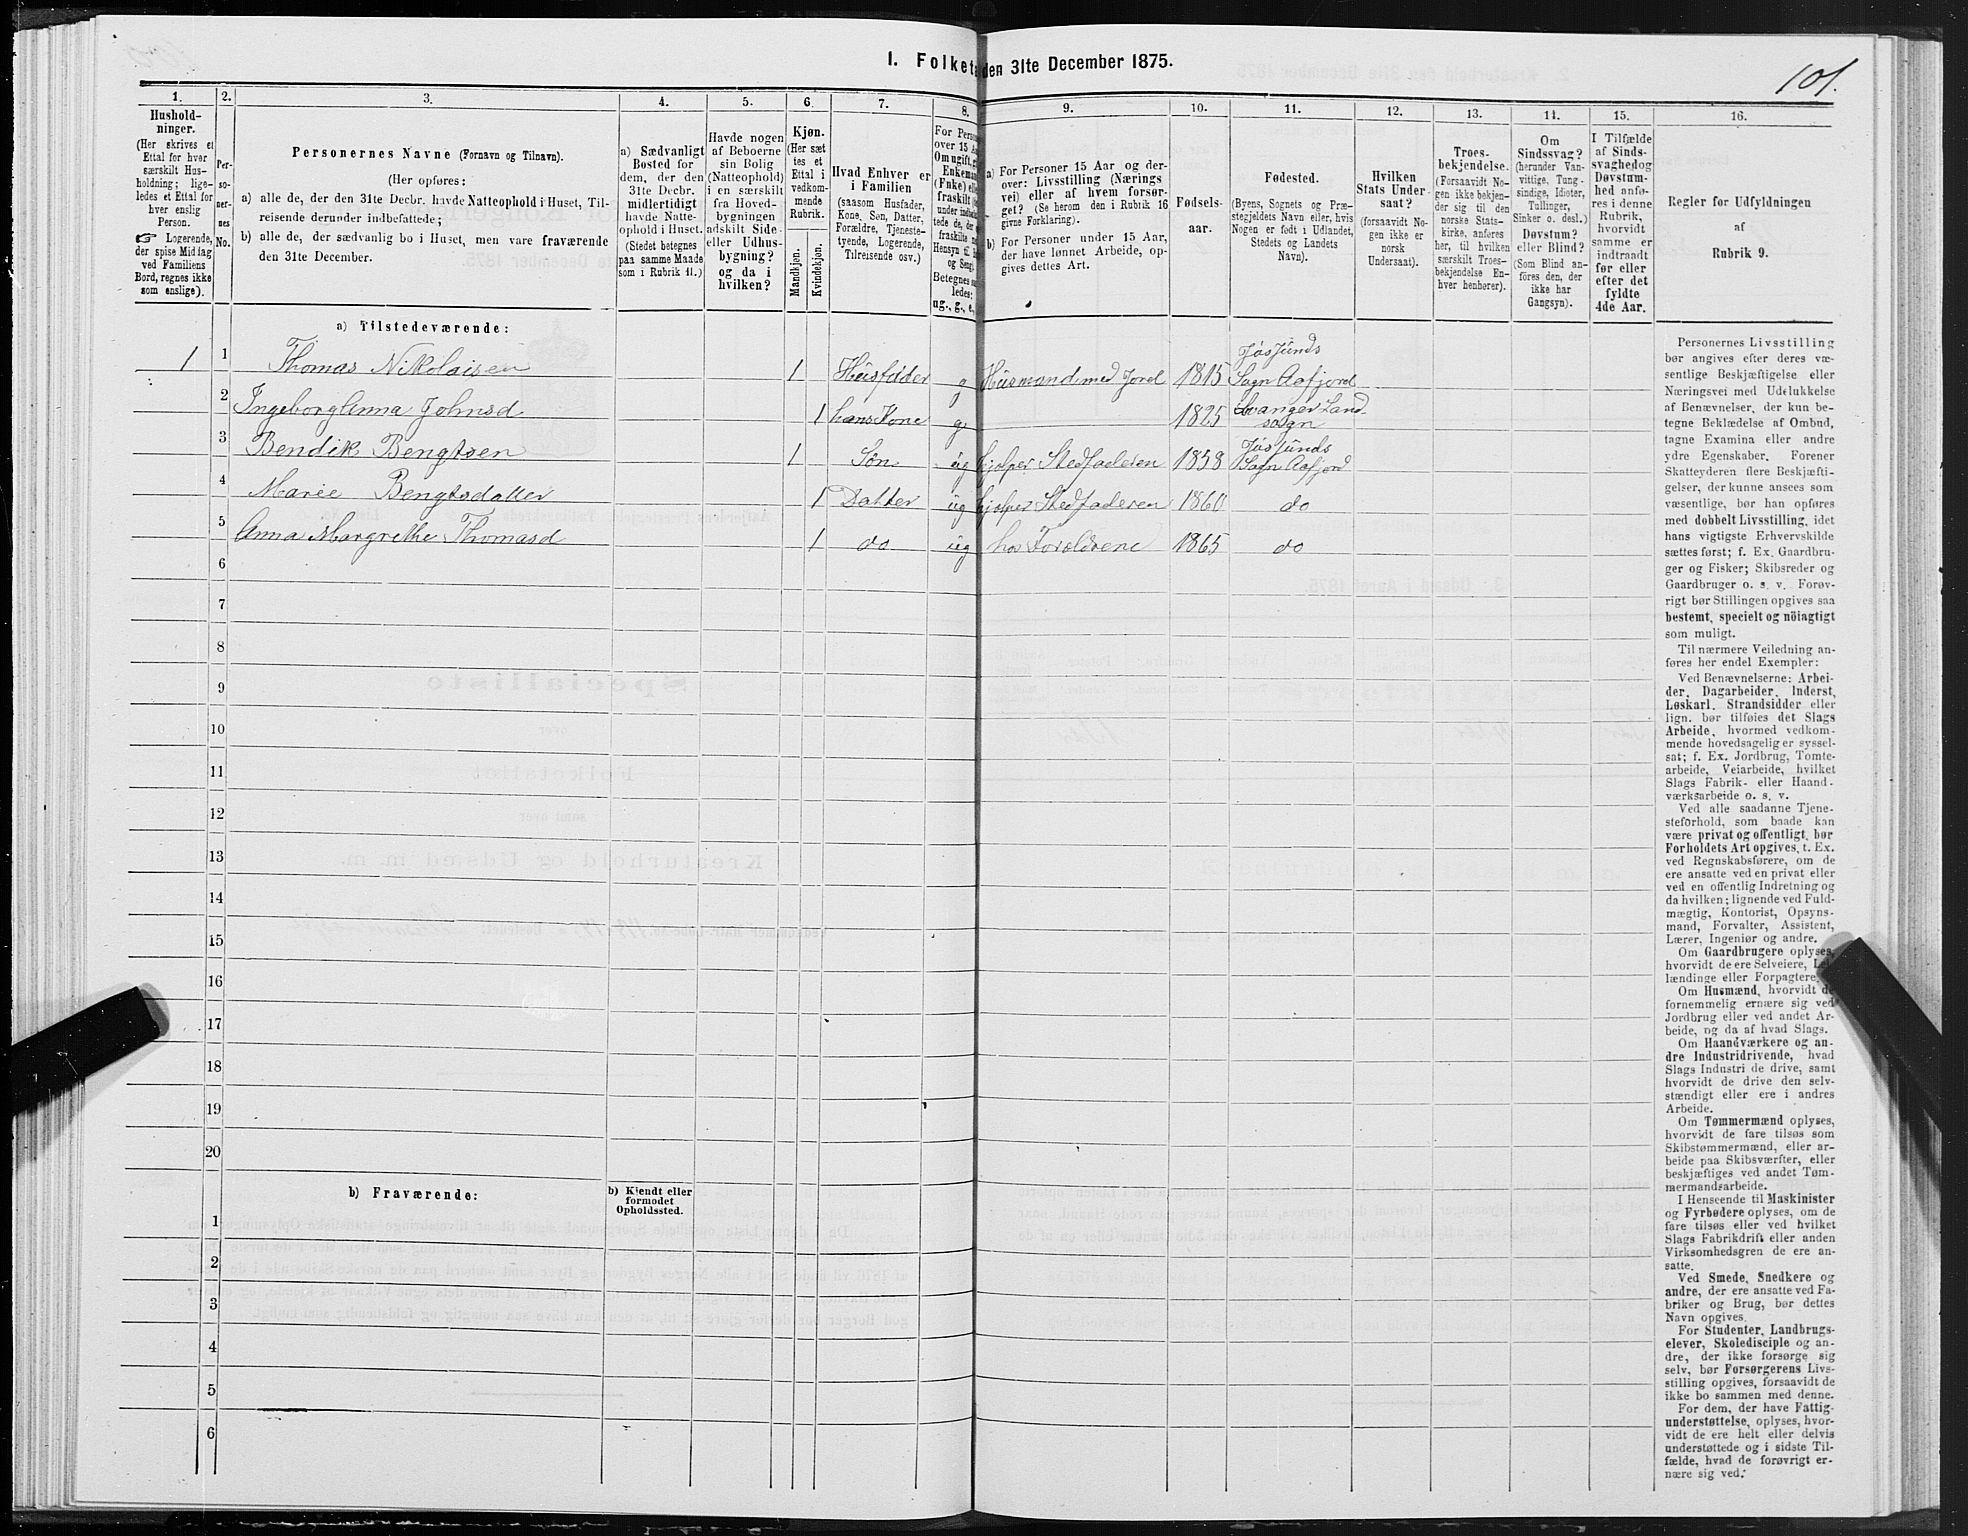 101.
1. Folketa den 31te December 1875.
1.
2.
3.
4.
5.
6.
7.
8.
9.
10.
11.
12.
13.
14.
15.
16.
Hushold-
ninger.
(Her skrives et
Ettal for hver
særskilt Hus-
holdning; lige-
ledes et Ettal for
hver enslig
Person.
☞ Logerende,
der spise Middag
ved Familiens
Bord, regnes ikke
som enslige).
Per-
so-
ner-
nes
No.
Personernes Navne (Fornavn og Tilnavn).
(Her opføres:
a) alle de, der den 31te Decbr. havde Natteophold i Huset, Til-
reisende derunder indbefattede;
b) alle de, der sædvanlig bo i Huset, men vare fraværende
den 31te December.
a) Sædvanligt
Bosted for
dem, der den
31te Decbr.
midlertidigt
havde Natte-
ophold i Huset.
(Stedet betegnes
paa samme Maade
som i Rubrik 11.)
Havde nogen
af Beboerne
sin Bolig
(Natteophold)
i en særskilt
fra Hoved-
bygningen
adskilt Side-
eller Udhus-
bygning?
og da i
hvilken?
Kjøn.
(Her sæt-
tes et
Ettal i
vedkom-
mende
Rubrik.
Mandkjøn.
Kvindekjøn.
Hvad Enhver er
i Familien
(saasom Husfader,
Kone, Søn, Datter,
Forældre, Tjeneste-
tyende, Logerende,
Tilreisende osv.)
For Person
over 15 Aa
Om ugift, g
Enkeman
(Fnke) elle
fraskilt
ledes:
ug., g., e.,
a) For Personer 15 Aar og der-
over: Livsstilling (Nærings
vei) eller af hvem forsør-
get? (Se herom den i Rubrik 16
givne Forklaring).
b) For Personer under 15 Aar,
der have lønnet Arbeide, op-
gives dettes Art.
Fødsels-
aar.
Fødested.
(Byens, Sognets og Præ-
stegjeldets Navn eller, hvis
Nogen er født i Udlandet,
Stedets og Landets
Navn).
Hvilken
Stats Under-
saat?
(forsaavidt No-
gen ikke er
norsk
Undersaat).
Troes-
bekjendelse.
(Forsaavidt No-
gen ikke bekjen-
der sig til den
norske Stats-
kirke, anføres
her, til hvilken
særskilt Troes-
bekjendelse En-
hver henhører).
Om
Sindssvag?
(herunder Van-
vittige, Tung-
sindige, Idioter,
Tullinger,
Sinker o. desl.)
Døvstum?
eller Blind?
(Som Blind an-
føres den, der
ikke har
Gangsyn).
I Tilfælde
af Sinds-
svaghed og
Døvstum-
hed anfø-
res i denne
Rubrik,
hvorvidt
samme er
indtraadt
før eller
efter det
fyldte
4de Aar.
Regler for Udfyldningen
af
Rubrik 9.
a) Tilstedeværende:
1 1 Thomas Nikolaisen 1 Husfader g Husmand med Jord 1815 Jøssunds Sogn Aafjord
2 Ingeborg Anna Johnsd 1 hans Kone g 1825 Land- sogn
3 Bendik Bengtsen 1 Søn ug hjelper Stedfaderen 1858 Jøssunds Sogn Aafjord
4 Marie Bengtsdatter 1 Datter ug hjelper Stedfaderen 1860 do
5 Anna Margrethe Thomasd 1 do ug hos Forældrene 1865 do
6
7
8
9
10
11
12
13
14
15
16
17
18
19
20
b) Fraværende:
b) Kjendt eller
formodet
Opholdssted.
1
2
3
4
5
6
Personernes Livsstilling
bør angives efter deres væ-
sentlige Beskjæftigelse eller
Næringsvei med Udelukkelse
af Benævnelser, der kun be-
tegne Beklædelse af Ombud,
tagne Examina eller andre
ydre Egenskaber. Forener
Skatteyderen flere Beskjæfti-
gelser, der kunne ansees som
væsentlige, bør han opføres
med dobbelt Livsstilling, idet
hans vigtigste Erhvervskilde
sættes først; f. Ex. Gaardbru-
ger og Fisker; Skibsreder og
Gaardbruger o. s. v. Forøv-
rigt bør Stillingen opgives saa
bestemt, specielt og nöiagtigt
som muligt.
Til nærmere Veiledning an-
føres her endel Exempler:
Ved Benævnelserne: Arbei-
der, Dagarbeider, Inderst,
Løskarl, Strandsidder eller
lign. bør tilføies det Slags
Arbeide, hvormed vedkom-
mende hovedsagelig er syssel-
sat; f. Ex. Jordbrug, Tomte-
arbeide, Veiarbeide, hvilket
Slags Fabrik- eller Haand-
værksarbeide o. s. v.
Ved alle saadanne Tjene-
steforhold, som baade kan
være privat og offentligt, bør
Forholdets Art opgives, t. Ex.
ved Regnskabsførere, om de
ere ansatte ved en privat eller
ved en offentlig Indretning og
da hvilken; lignende ved Fuld-
mægtig, Kontorist, Opsyns-
mand, Forvalter, Assistent,
Lærer, Ingeniør og andre.
Om Gaardbrugere oplyses,
hvorvidt de ere Selveiere, Lei-
lændinge eller Forpagtere.
Om Husmænd, hvorvidt de
fornemmelig ernære sig ved
Jordbrug eller ved andet Ar-
beide, og da af hvad Slags.
Om Haandværkere og an-
dre Industridrivende, hvad
Slags Industri de drive, samt
hvorvidt de drive den selv-
stændigt eller ere i andres
Arbeide.
Om Tømmermænd oplyses,
hvorvidt de fare tilsøs som
Skibstømmermænd, eller ar-
beide paa Skibsværfter, eller
beskjæftiges ved andet Tøm-
mermandsarbeide.
I Henseende til Maskinister
og Fyrbødere oplyses, om de
fare tilsøs eller ved hvilket
Slags Fabrikdrift eller anden
Virksomhedsgren de ere an-
satte.
Ved Smede, Snedkere og
andre, der ere ansatte ved Fa-
briker og Brug, bør dettes
Navn opgives.
For Studenter, Landbrugs-
elever, Skoledisciple og an-
dre, der ikke forsørge sig
selv, bør Forsørgerens Livs-
stilling opgives, forsaavidt de
ikke bo sammen med denne.
For dem, der have Fattig-
understøttelse, oplyses, hvor-
vidt de ere helt eller delvis
understøttede og i sidste Til-
fælde, hvad de forøvrigt er-
nære sig ved.